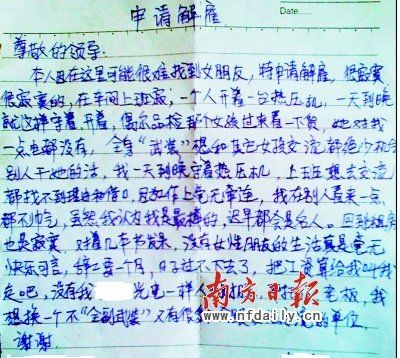 申请解雇
Date
尊敬的领导:
本人因在这里可能很难找到女朋友，特申请解雇，很寂寞
很寂寞的，在车间上班寂，一个人开着一台热压机，一天到晚
就这样守着开着，偶尔品检那个女孩过来看一下货，她对我
一点电都没有，全身"武装"想和其它女孩交流都绝少机会
别人干她的活，我一天到晚守着热压机，上班想去交流
都找不到理由和借口，反加作上毫无牵连，我在别人看来一点
都不帅气，虽然我认为我是最棒的，迟早都会是名人。回到租房
也是寂寞，对着几本书发呆，没有女性朋友的生活真是毫无
快乐可言，辞工要一个月，日子过不下去了，把工资算给我叫我
走吧，没有我 光电一样 老板，我
想换一个不"全副武装"又有很 的单位
谢谢
南方日报
www.nfdaily.cn